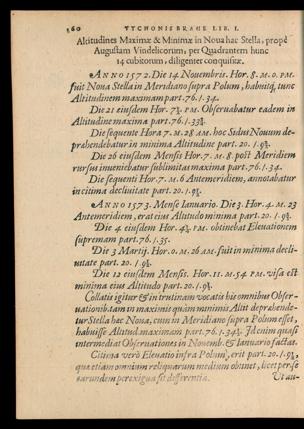 360 TYCHONIS BRAHE LIB. I.
Altitudines Maximæ & Minimæ in Nova hac Stella, propè
Augustam Vindelicorum, per Quadrantem hunc
14 cubitorum, diligenter conquisitæ.
ANNO 1572. Die 14 Nouembris. Hor. 8. M. 0. P.M.
fuit Noua Stella in Meridiano supra Polum, habuitq, tunc
Altitudinem maximam part. 76. 1. 34.
Die 21 eiusdem Hor. P.M. Obseruabatur eadem in
Altitudine maxima part. 76. 1.
Die sequente Hora 7. M. 28 AM. hoc Sidus Nouum de-
prehendebatur in minima Altitudine part. 20. 1.
Die 26 eiusdem Mensis Hor. 7. M. 8. post Meridiem
rursus inueniebatur sublimitas maxima part. 76. 1. 34.
Die sequenti Hor. 7. M. 6 Antemeridiem, annotabatur
in citima decliuitate part. 20. 1.
ANNO 1573. Mense Ianuario. Die 3. Hor. 4. M. 23
Antemeridiem, erat eius Altitudo minima part. 20. 1.
Die 4 eiusdem Hor. P.M. obtinebat Eleuationem
supremam part. 76. 1. 35.
Die 3 Martij. Hor. 0. M. 26 AM. fuit in minima decli-
uitate part. 20. 1.
Die 12 eiusdem Mensis. Hor. 11. M. 54 P.M. visa est
minima eius Altitudo part. 20. 1.
Collatis igitur & in trutinam vocatis his omnibus Obser-
uationib. tam in maximis quàm minimis Altit. deprehende-
tur Stella hæc Noua, cum in Meridiano supra Polum esset,
habuisse Altitud. maximam part. 76. 1. Idenim quasi
intermediat Obseruationes in Nouemb. & Ianuario factas.
Citima verò Eleuatio infra Polum, erit part. 20. 1.
quæ etiam omnium reliquarum medium obtinet, licet per se
earundem perexigua sit differentia.